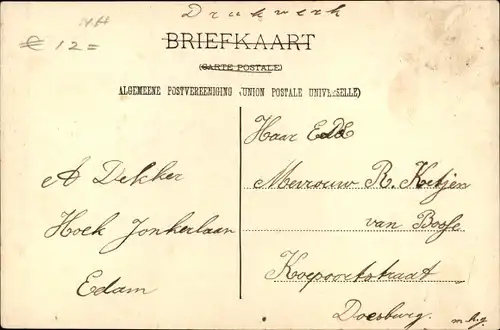 Drukwerk
NH
€ 12=
BRIEFKAART
(CARTE POSTALE)
ALGEMEENE POSTVEREENIGING (UNION POSTALE UNIVERSELLE)
A Dekker
Hoek Jonkerlaan
Edam
Haar Ed
Mevrouw R. Ketjen
van Bosse
Koepoortstraat
Doesburg.